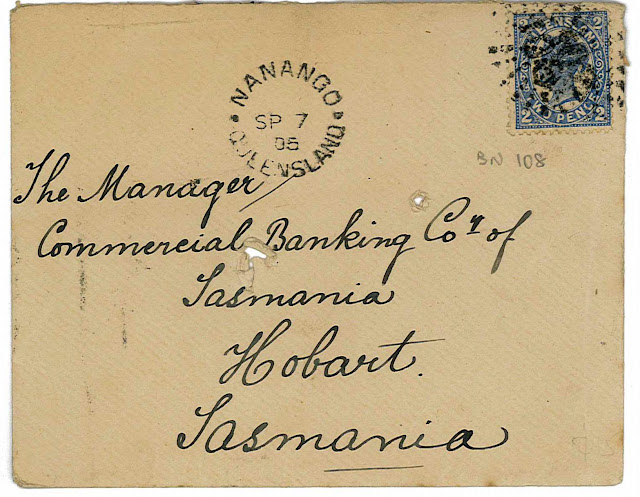 QUEENSLAND
TWO PENCE
2 2
NANANGO
SP 7
05
QUEENSLAND
BN 108
The Manager
Commercial Banking Coy of
Tasmania
Hobart.
Tasmania